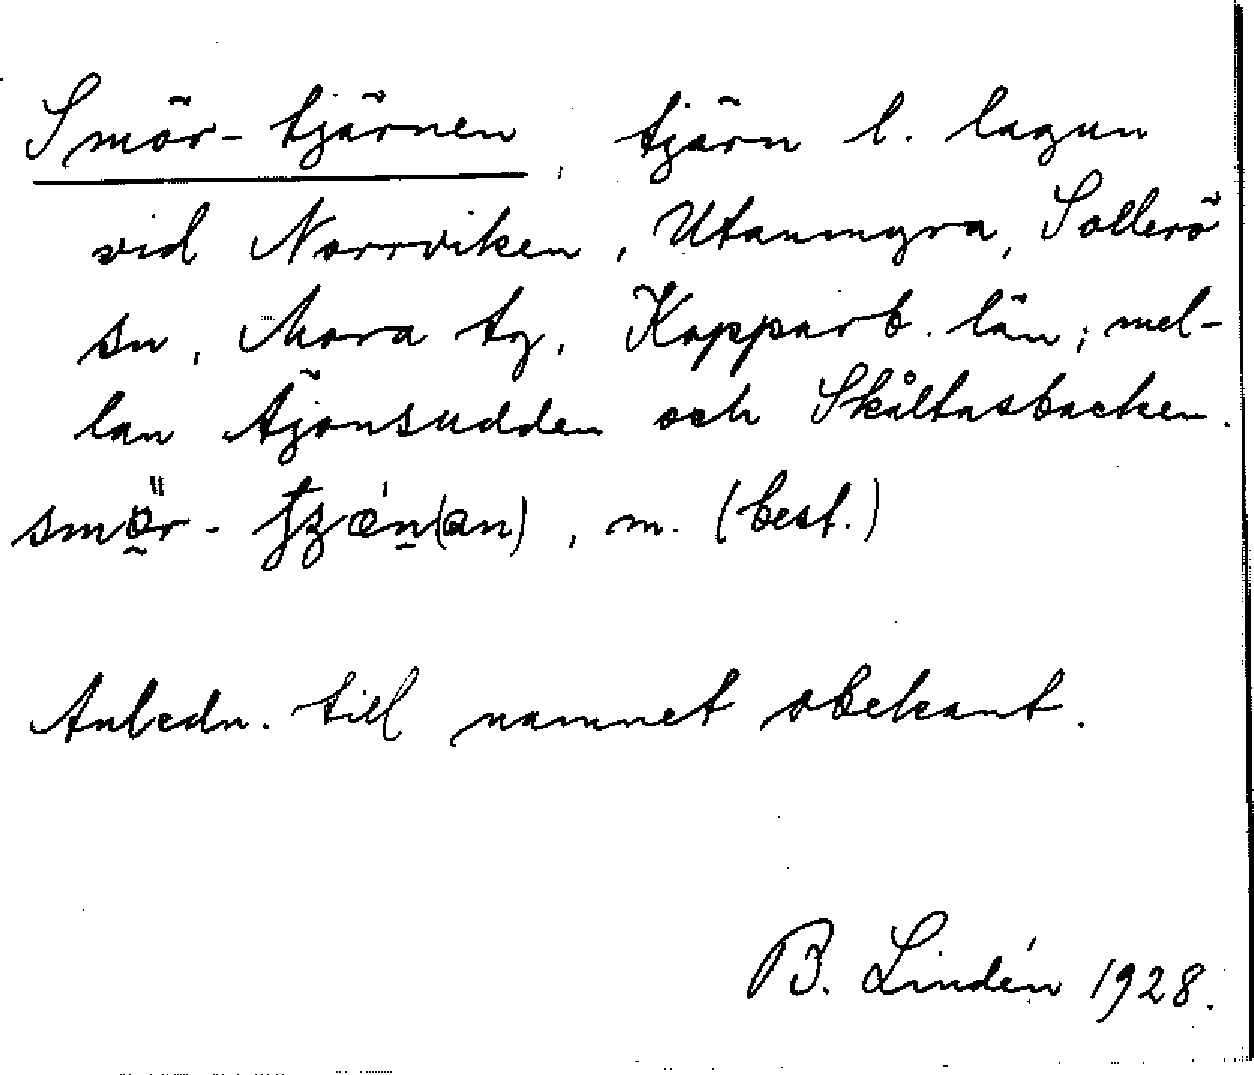 Smör-tjärnen, tjärn l. lagun
vid Norrviken, Utanmyra, Sollerö
sn, Mora tg, Kopparb. län; mel-
lan Äjönsudden och Skåltasbacken.
smör-, m. (best.)
Anledn. till namnet obekant.
B. Lindén 1928.